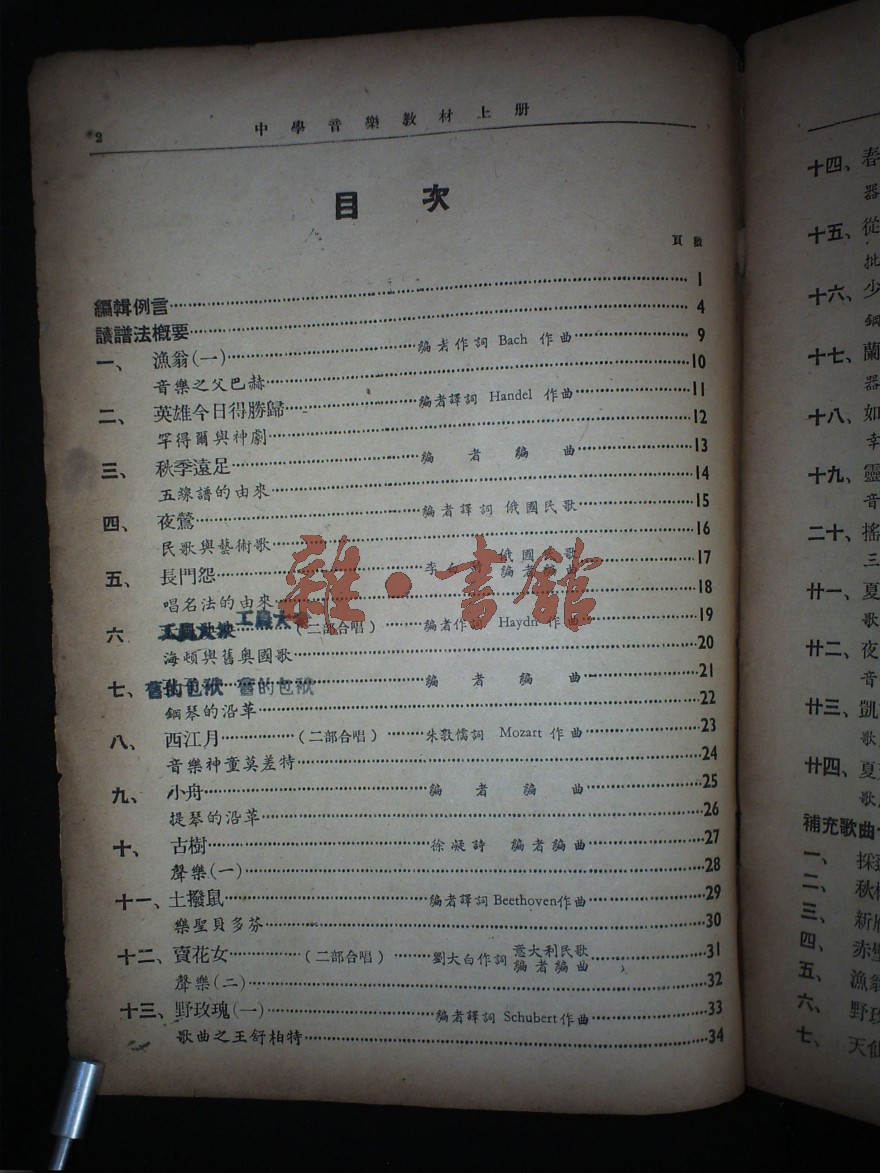 2 中學音樂教材上册
目 次
頁數
編輯例言 1
讀譜法概要 4
一、 漁翁(一) 編者作詞 Bach 作曲 9
音樂之父巴赫 10
二、 英雄今日得勝歸 編者譯詞 Handel 作曲 11
罕得爾與神劇 12
三、 秋季遠足 編者編曲 13
五線譜的由來 14
四、 夜鶯 編者譯詞 俄國民歌 15
民歌與藝術歌 16
五、 長門怨 李白 俄國民歌 編者編曲 17
唱名法的由來 18
六 工農 工農大 (二部合唱) 編者作詞 Haydn 作曲 19
海頓與舊奧國歌 20
七、 舊的包袱 舊的包袱 編者編曲 21
鋼琴的沿革 22
八、 西江月 (二部合唱) 朱敦儒詞 Mozart 作曲 23
音樂神童莫差特 24
九、 小舟 編者編曲 25
提琴的沿革 26
十、 古樹 徐凝詩 編者編曲 27
聲樂(一) 28
十一、土撥鼠 編者譯詞 Beethoven作曲 29
樂聖貝多芬 30
十二、賣花女 (二部合唱) 劉大白作詞 意大利民歌 編者編曲 31
聲樂(二) 32
十三、野玫瑰(一) 編者譯詞 Schubert作曲 33
歌曲之王舒柏特 34
雜·書館
十四、春
器
十五、從
批
十六、少
鋼
十七、蘭
器
十八、如
幸
十九、靈
音
二十、搖
三
廿一、夏
歌
廿二、夜
音
廿三、凱
歌
廿四、夏
歌
補充歌曲
一、 採
二、 秋
三、 新
四、 赤壁
五、 漁翁
六、 野玫
七、 天仙